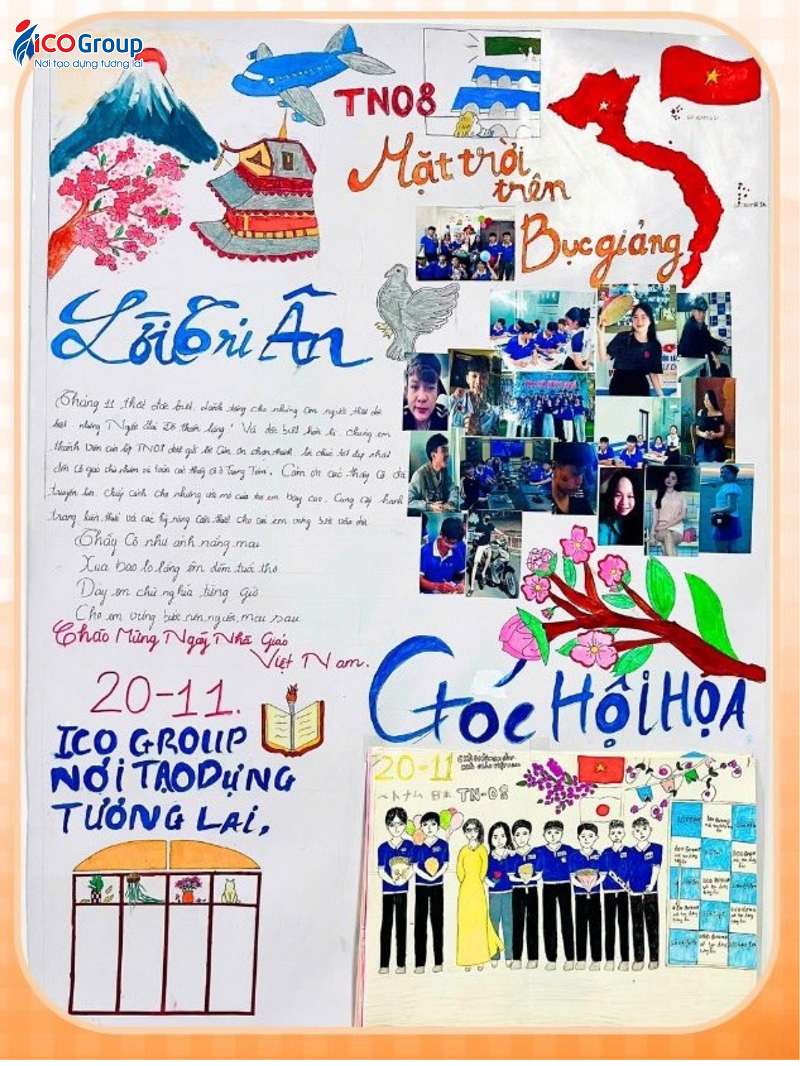 ICOGroup
Nơi tạo dựng tương lai
TN08
Mặt trời
trên
Bục giảng
Lời Tri Ân
Tháng 11 thật đặc biệt dành tặng cho những con người thật đặc
biệt những Người lái đò thầm lặng! Và đặc biệt hơn là chúng em
thành viên của lớp TN08 gửi lời cảm ơn chân thành lời chúc tốt đẹp nhất
đến cô giáo chủ nhiệm và toàn các thầy cô ở Trung Tâm. Cảm ơn các thầy cô đã
truyền lửa, chắp cánh cho những ước mơ của em bay cao. Cung cấp hành
trang kiến thức và các kỹ năng cần thiết cho các em vững bước vào đời
Thầy Cô như ánh nắng mai
Xua bao lo lắng êm đềm tuổi thơ
Dạy em chữ nghĩa từng giờ
Cho em vững bước nên người mai sau
Chào Mừng Ngày Nhà Giáo
Việt Nam.
20-11.
ICO GROUP
NƠI TẠO DỰNG
TƯƠNG LAI.
Góc HộI HỌA
20-11
ベトナム 日本 TN-08